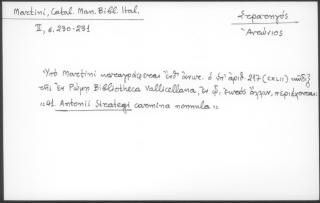 Martini, Catal. Man. Bibl. Ital.
II, σ. 230-231
Στρατηγός
Ἀντώνιος
Ὑπὸ Martini καταγράφεται ὁ ὑπ' ἀριθ. 217 (CXLII) κῶδιξ
τῆς ἐν Ῥώμῃ Bibliotheca Vallicellana, ἐν φ. περιέχονται:
«41 Antonii Strategi carmina nonnulla»